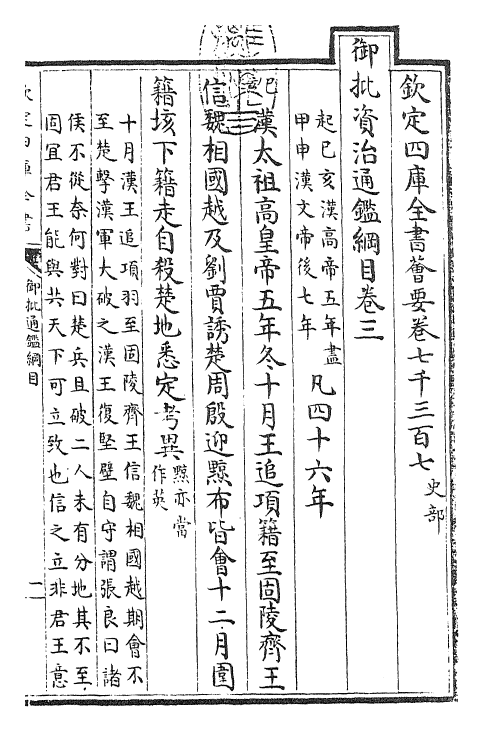 欽定四庫全書薈要卷七千三百七 史部
御批資治通鑑綱目卷三
起己亥漢高帝五年盡
甲申漢文帝後七年
凡四十六年
己亥漢太祖高皇帝五年冬十月王追項籍至固陵齊王
信魏相國越及劉賈誘楚周殷迎黥布皆會十二月圍
籍垓下籍走自殺楚地悉定考異 黥亦當
作英
十月漢王追項羽至固陵齊王信魏相國越期會不
至楚擊漢軍大破之漢王復堅壁自守謂張良曰諸
侯不從奈何對曰楚兵且破二人未有分地其不至
固宜君王能與共天下可立致也信之立非君王意
欽定四庫全書
御批通鑑綱目